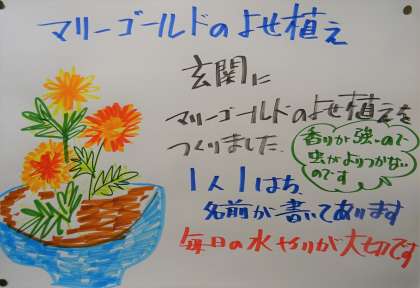 マリーゴールドのよせ植え
玄関に
マリーゴールドのよせ植えを
つくりました.
香りが強いので
虫がよりつかない
のです
1人1はち
名前が書いてあります
毎日の水やりが大切です